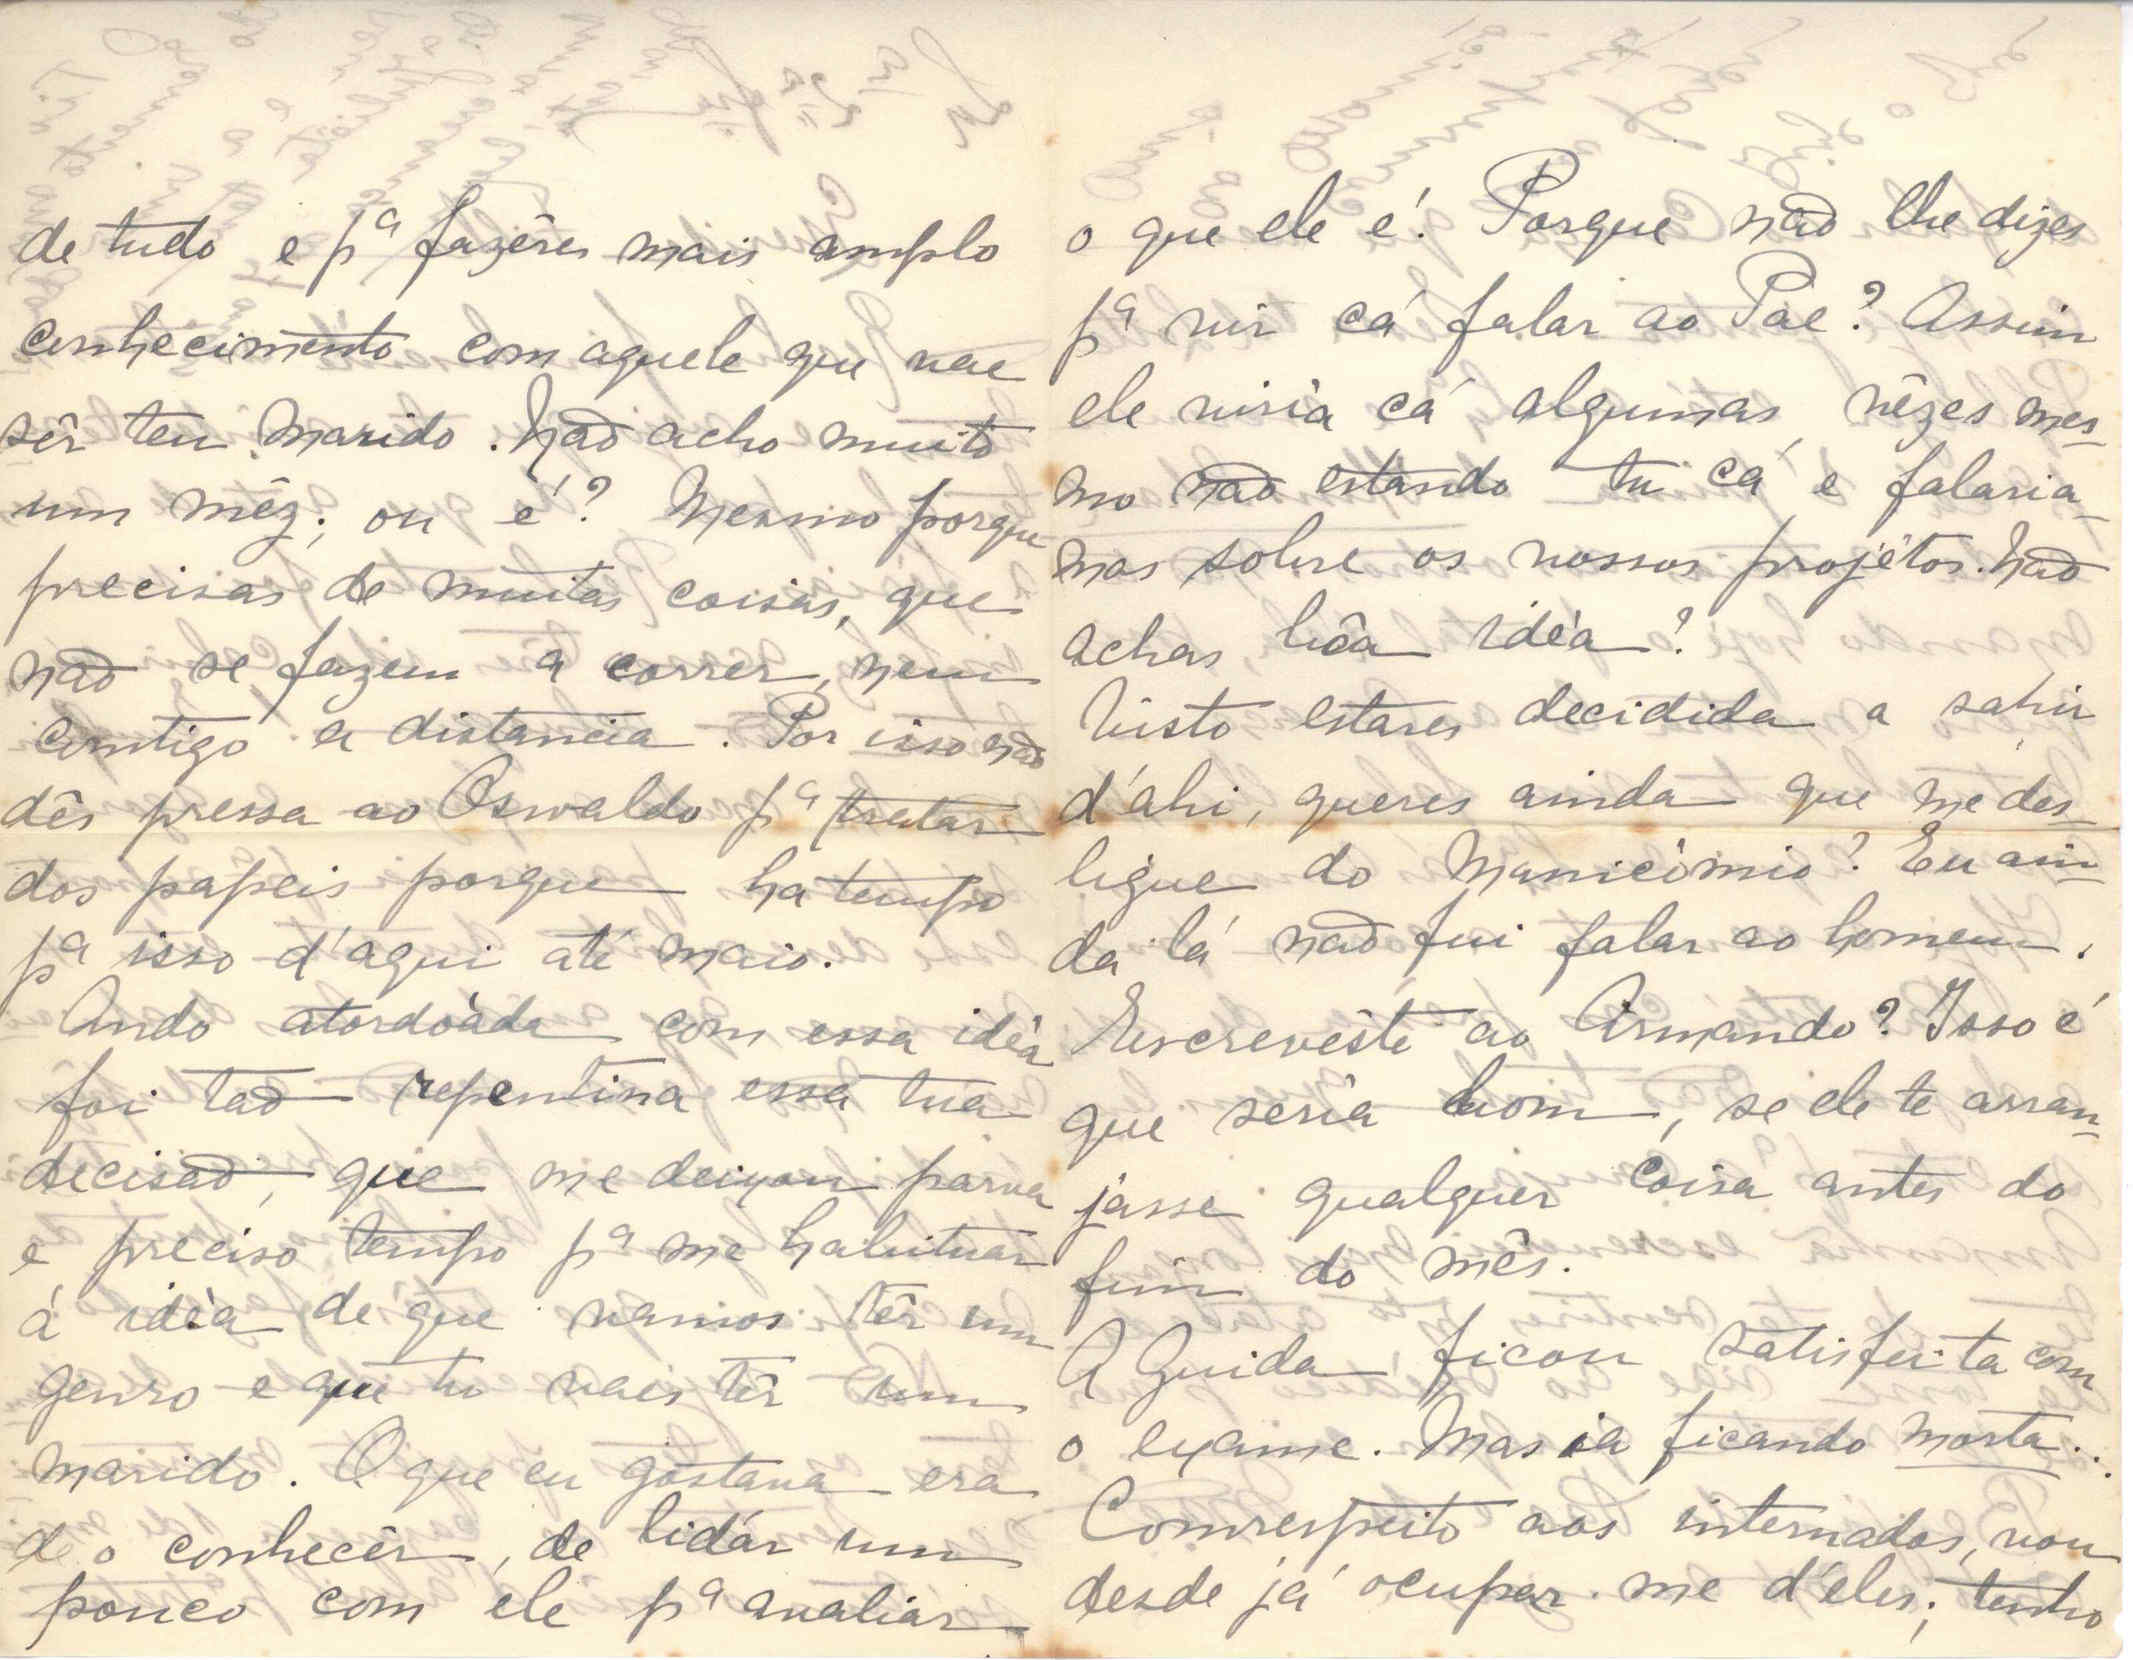 de tudo e pª fazêres mais amplo
conhecimento com aquele que vae
sêr teu marido. Não acho muito
um mêz; ou é? Mesmo porque
precisas de muitas coisas, que
não se fazem a correr, nem
comtigo a distancia. Por isso não
dês pressa ao Oswaldo pª tratar
dos papeis porque ha tempo
pª isso d'aqui até maio.
Ando atordoàda com essa idèa
foi tão repentina essa tua
decisão, que me deixou parva
e preciso tempo pª me habituar
á idèa de que vamos têr um
genro e que tu vaes têr um
marido. O que eu gostava era
de o conhecêr, de lidár um
pouco com ele pª avaliar
o que ele é! Porque não lhe dizes
pª vir cá falar ao Pae? Assim
ele viria cá algumas vêzes mes-
mo não estando tu cá e falaria-
mos sobre os nossos projétos. Não
achas bôa idèa?
Visto estares decidida a sahir
d'ahi, queres ainda que me des-
ligue do Manicòmio? Eu ain-
da lá não fui falar ao homem.
Escrevêste ao Armando? Isso é
que seria bom, se ele te arran-
jasse qualquer coisa antes do
fim do mês.
A Guida ficou satisfeita com
o exame. Mas ia ficando morta...
Comrespeito aos internados, vou
desde já ocupar-me d'eles; tenho